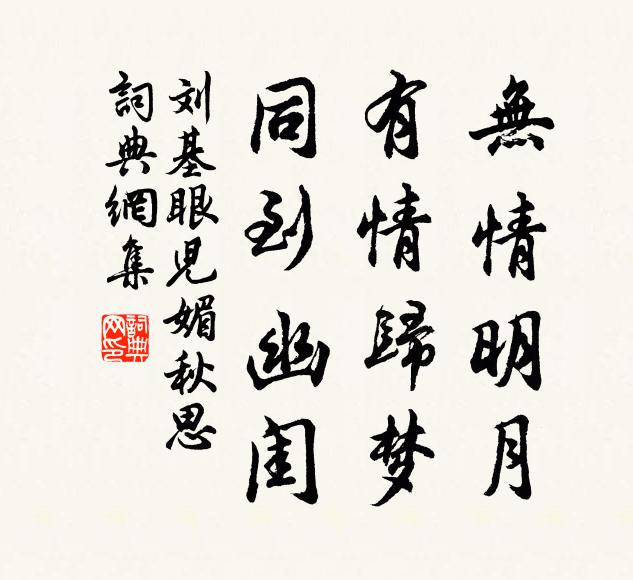 無情明月
有情歸梦
同到幽闺
刘基眼児媚秋思
詞典網集
詞典
网印